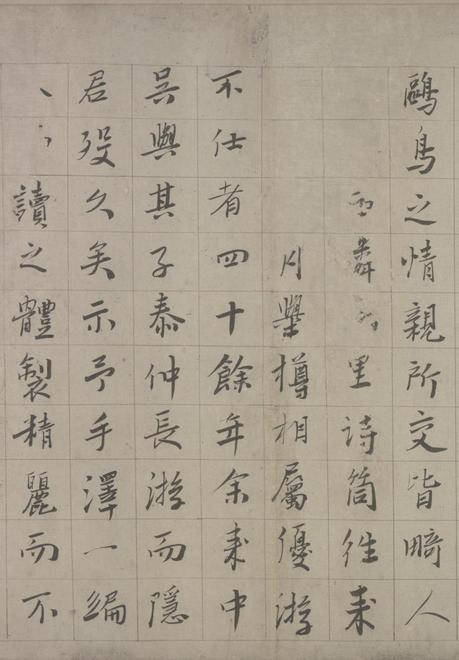 鷗鳥之情親所交皆畸人
里詩筒往来
月樽相屬優游
不仕者四十餘年余来中
吴興其子泰仲長游而隱
君歿久矣示予手澤一編
讀之體製精麗而不